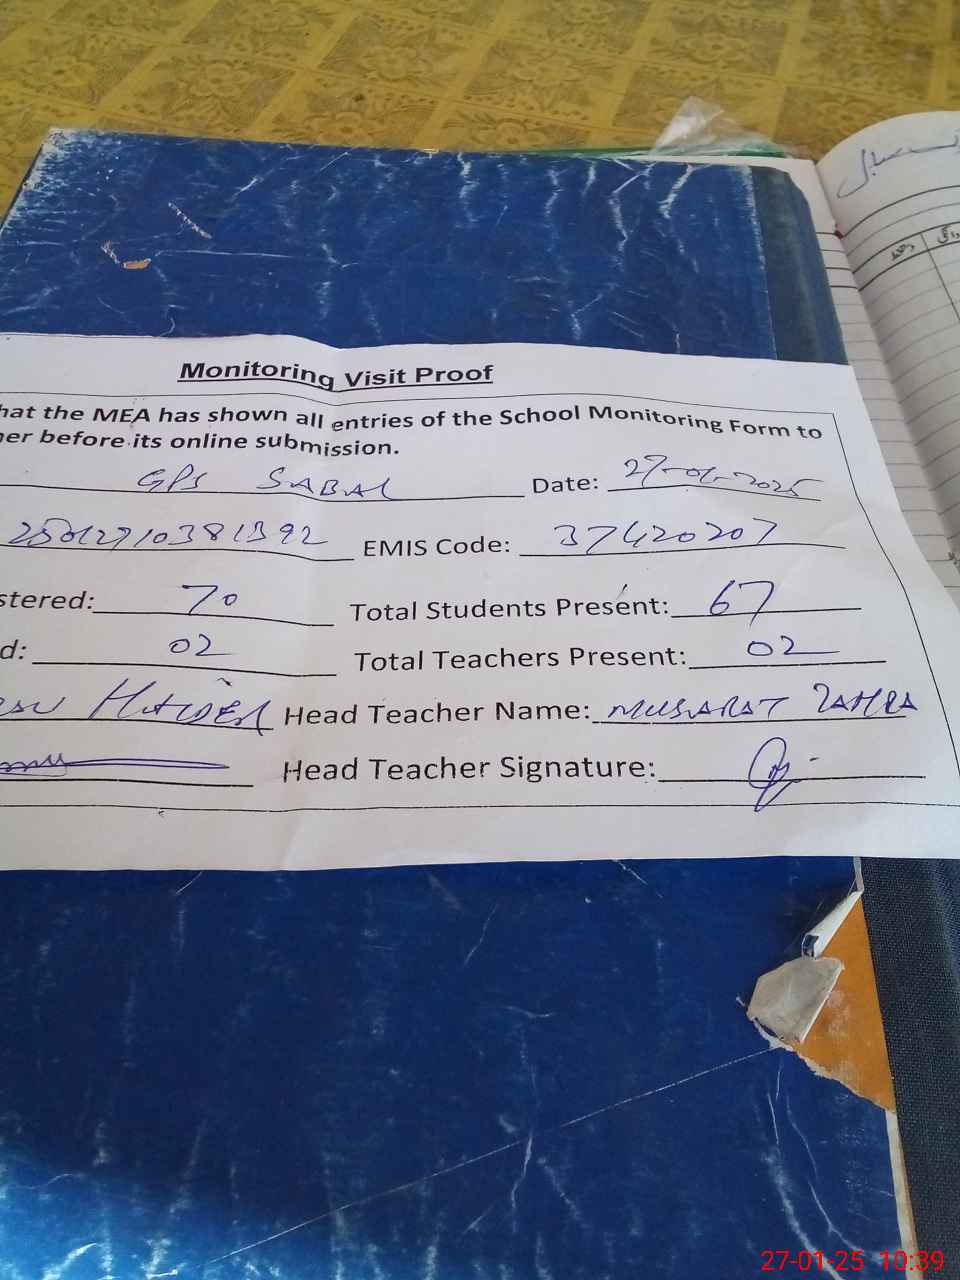 Monitoring Visit Proof
hat the MEA has shown all entries of the School Monitoring Form to
her before its online submission.
GPS SABAL Date: 27-01-2025
25012710381392 EMIS Code: 37420207
stered: 70 Total Students Present: 67
d: 02 Total Teachers Present: 02
HAIDER Head Teacher Name: MUSARAT ZAHRA
Head Teacher Signature:
27-01-25 10:39